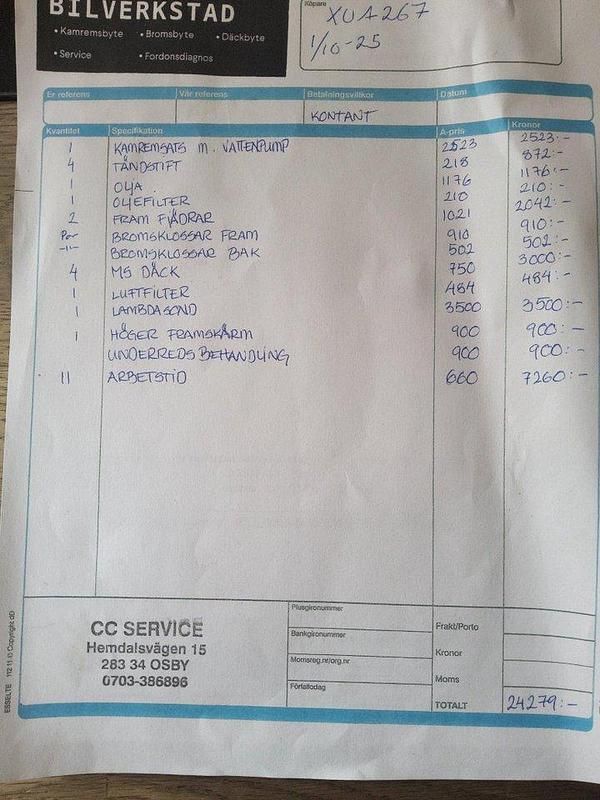 BILVERKSTAD
• Kamremsbyte • Bromsbyte • Däckbyte
• Service • Fordonsdiagnos
Köpare
XUA267
1/10-25
Er referens Vår referens Betalningsvillkor Datum
KONTANT
Kvantitet Specifikation A-pris Kronor
1 KAMREMSATS M. VATTENPUMP 2523 2523:-
4 TÄNDSTIFT 218 872:-
1 OLJA 1176 1176:-
1 OLJEFILTER 210 210:-
2 FRAM FJÄDRAR 1021 2042:-
Par BROMSKLOSSAR FRAM 910 910:-
-11- BROMSKLOSSAR BAK 502 502:-
4 MS DÄCK 750 3000:-
1 LUFTFILTER 484 484:-
1 LAMBDASOND 3500 3500:-
1 HÖGER FRAMSKÄRM 900 900:-
UNDERREDSBEHANDLING 900 900:-
11 ARBETSTID 660 7260:-
CC SERVICE
Hemdalsvägen 15
283 34 OSBY
0703-386896
Plusgironummer
Bankgironummer
Momsreg.nr/org.nr
Förfallodag
Frakt/Porto
Kronor
Moms
TOTALT 24279:-
ESSELTE 112 11 © Copyright